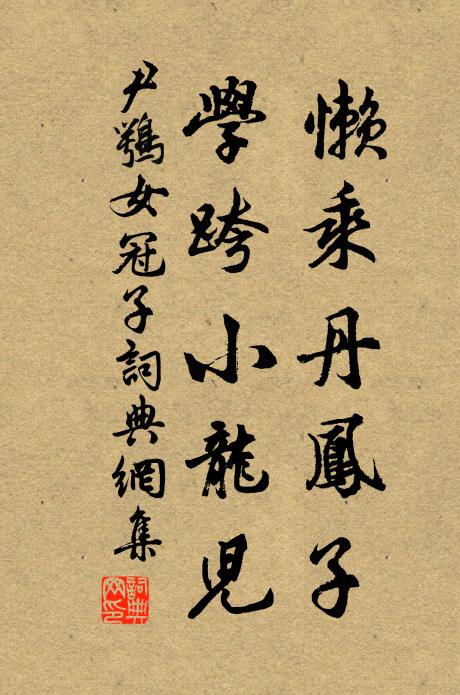 懶乘丹鳳子
學跨小龍兒
尹鶚女冠子詞典網集
詞典網印